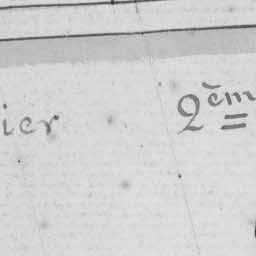 ier 2èm